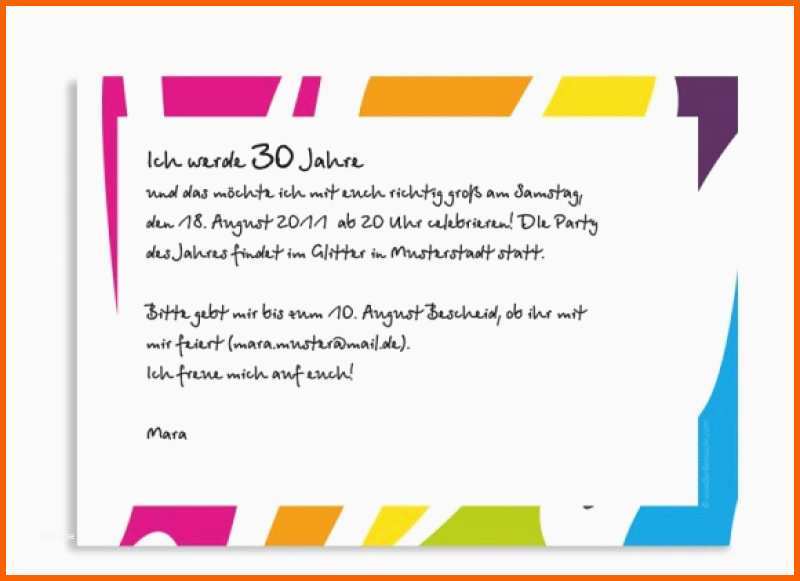 Ich werde 30 Jahre
und das möchte ich mit euch richtig groß am Samstag,
den 18. August 2011 ab 20 Uhr celebrieren! DIe Party
des Jahres findet im Glitter in Musterstadt statt.
Bitte gebt mir bis zum 10. August Bescheid, ob ihr mit
mir feiert (mara.muster@mail.de).
Ich freue mich auf euch!
Mara